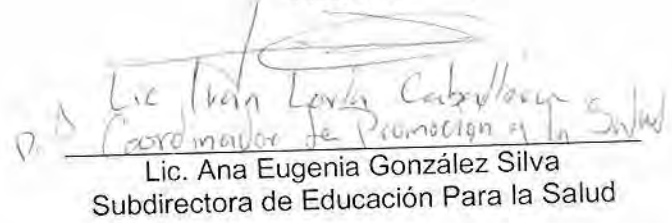 Lic Iván
P. A Coordinador de Promoción a la Salud
Lic. Ana Eugenia González Silva
Subdirectora de Educación Para la Salud